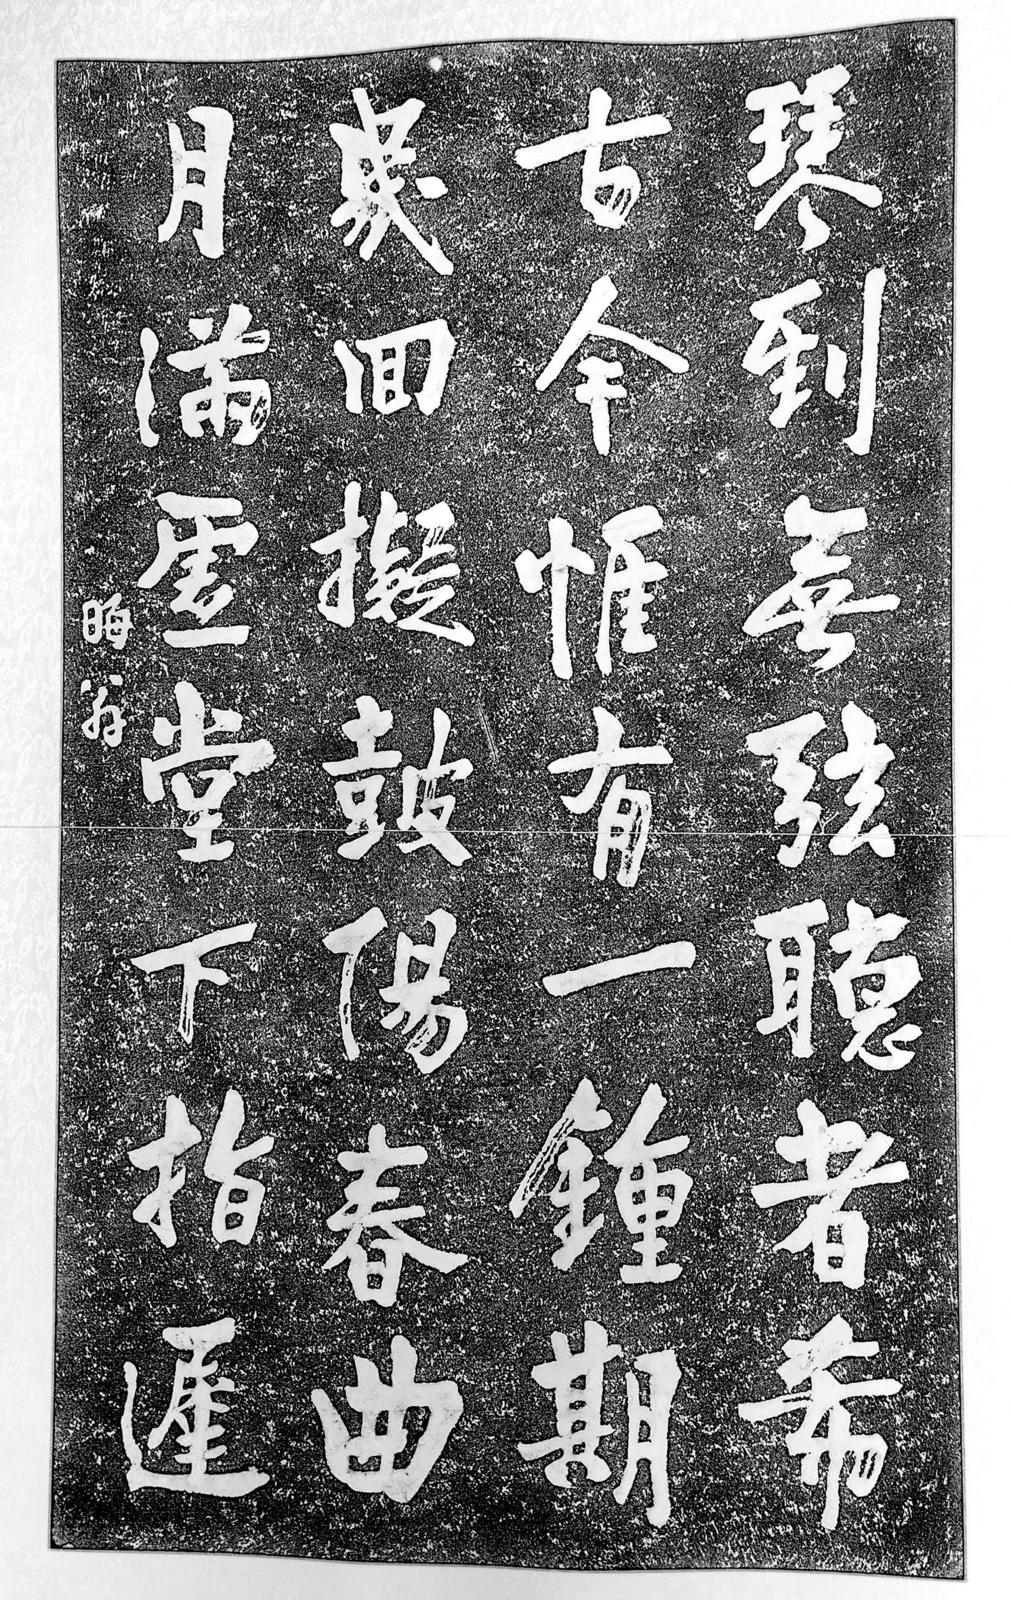 琴到無弦聽者希
古今惟有一鍾期
幾回擬鼓陽春曲
月滿虛堂下指遲
晦翁